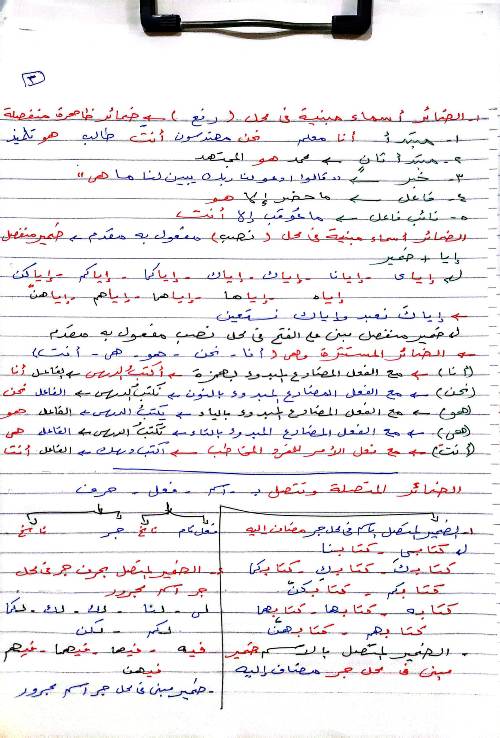 ٣
١- الضمائر أسماء مبنية فى محل (رفع) ← ضمائر ظاهرة منفصلة
١- مبتدأ أنا معلم نحن مهندسون أنت طالب هو تلميذ
٢- مبتدأ ثانٍ ← محمد هو المجتهد
٣- خبر ← "قالوا ادعو لنا ربك يبين لنا ما هى"
٤- فاعل ← ما حضر إلا هو
٥- نائب فاعل ← ما عوقب إلا أنت
الضمائر أسماء مبنية فى محل (نصب) مفعول به مقدم ← ضمير منفصل
إيا + ضمير
إياى - إيانا - إياك - إياك - إياكما - إياكم - إياكن
إياه - إياها - إياهما - إياهم - إياهن
← إياك نعبد وإياك نستعين
ضمير منفصل مبنى على الفتح فى محل نصب مفعول به مقدم
← الضمائر المستترة وهى (أنا - نحن - هو - هى - أنت)
(أنا) ← مع الفعل المضارع المبدوء بهمزة ← أكتب الدرس ← الفاعل أنا
(نحن) ← مع الفعل المضارع المبدوء بالنون ← نكتب الدرس ← الفاعل نحن
(هو) ← مع الفعل المضارع المبدوء بالياء ← يكتب الدرس ← الفاعل هو
(هى) ← مع الفعل المضارع المبدوء بالتاء ← تكتب الدرس ← الفاعل هى
(أنت) ← مع فعل الأمر للمفرد المخاطب ← اكتب درسك ← الفاعل أنت
الضمائر المتصلة وتتصل بـ - اسم - فعل - حرف
فعل تام ناسخ جر ناسخ
١- الضمير المتصل بالاسم فى محل جر مضاف إليه
كتابى - كتابنا
كتابك - كتابك - كتابكما
كتابكم - كتابكن
كتابه - كتابها - كتابهما
كتابهم - كتابهن
- الضمير المتصل بالاسم ضمير
مبنى فى محل جر مضاف إليه
- الضمير المتصل بحرف جر فى محل
جر اسم مجرور
لى - لنا - لك - لك - لكما
لكم - لكن
فيه - فيها - فيهما - فيهم
فيهن
- ضمير مبنى فى محل جر اسم مجرور